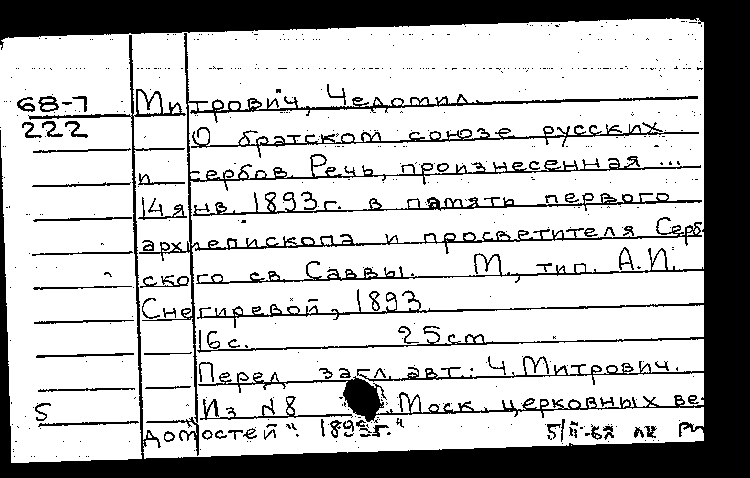 68-7
222
Митрович, Чедомил.
О братском союзе русских
и сербов. Речь, произнесенная ...
14 янв. 1893 г. в память первого
архиепископа и просветителя Серб-
ского св. Саввы. М., тип. А.И.
Снегиревой, 1893
16 с. 25 cm
Перед загл. авт.: Ч. Митрович.
Из №8 „Моск. церковных ве-
домостей". 1893 г."
S
5/II-68